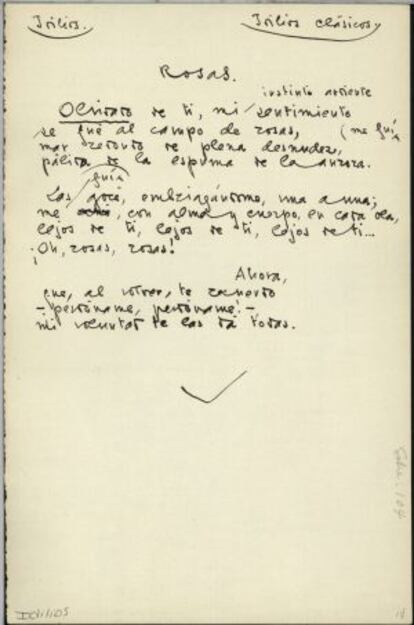 Idilios.
Idilios clásicos,
Rosas.
instinto ardiente
Olvidado de ti, mi sentimiento
se fué al campo de rosas, (me guía
mar redondo de plena desnudez,
pálida de la espuma de la aurora.
guía
Las gocé, embriagándome, una a una;
me, con alma y cuerpo, en cada ola,
lejos de ti, lejos de ti, lejos de ti...
¡Oh, rosas, rosas!
Ahora,
que, al volver, te recuerdo
—¡perdóname, perdóname!—
mi voluntad te las da todas.
IDILIOS